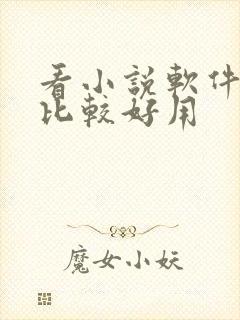 看小說軟件
比較好用
魔女小妖